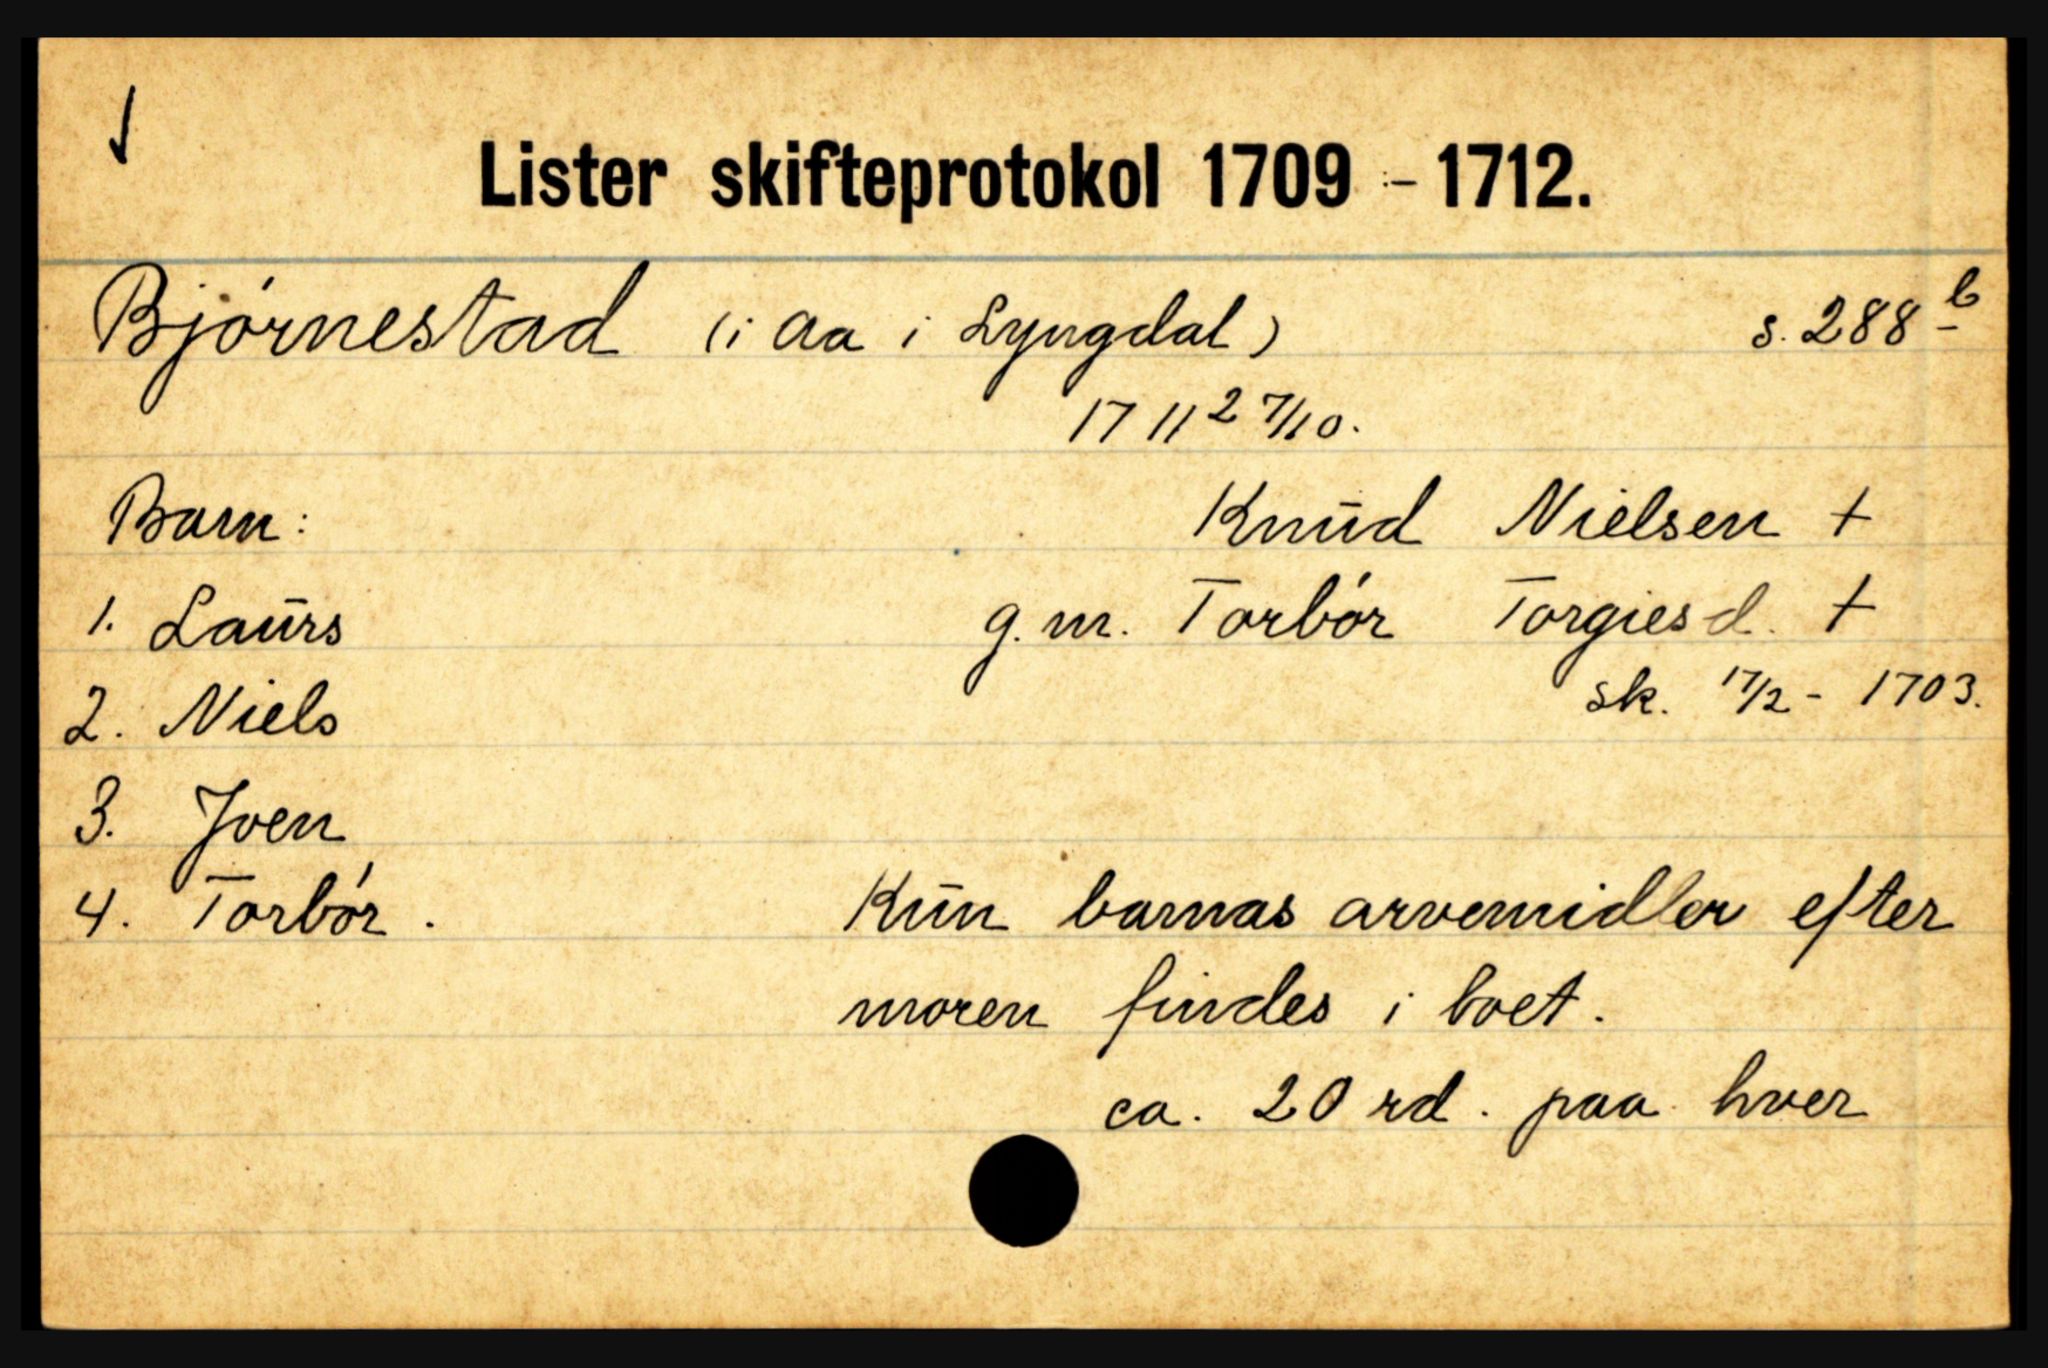 Lister skifteprotokol 1709 - 1712.
Bjórnestad (i Aa i Lyngdal) s. 288 b
1711 27/10.
Barn: Knūd Nielsen †
1. Laūrs g. m. Torbór Torgiesd. †
2. Niels sk. 17/2 - 1703.
3. Jven
4. Torbór. Kūn barnas arvemidler efter
moren findes i boet.
ca. 20 rd. paa hver